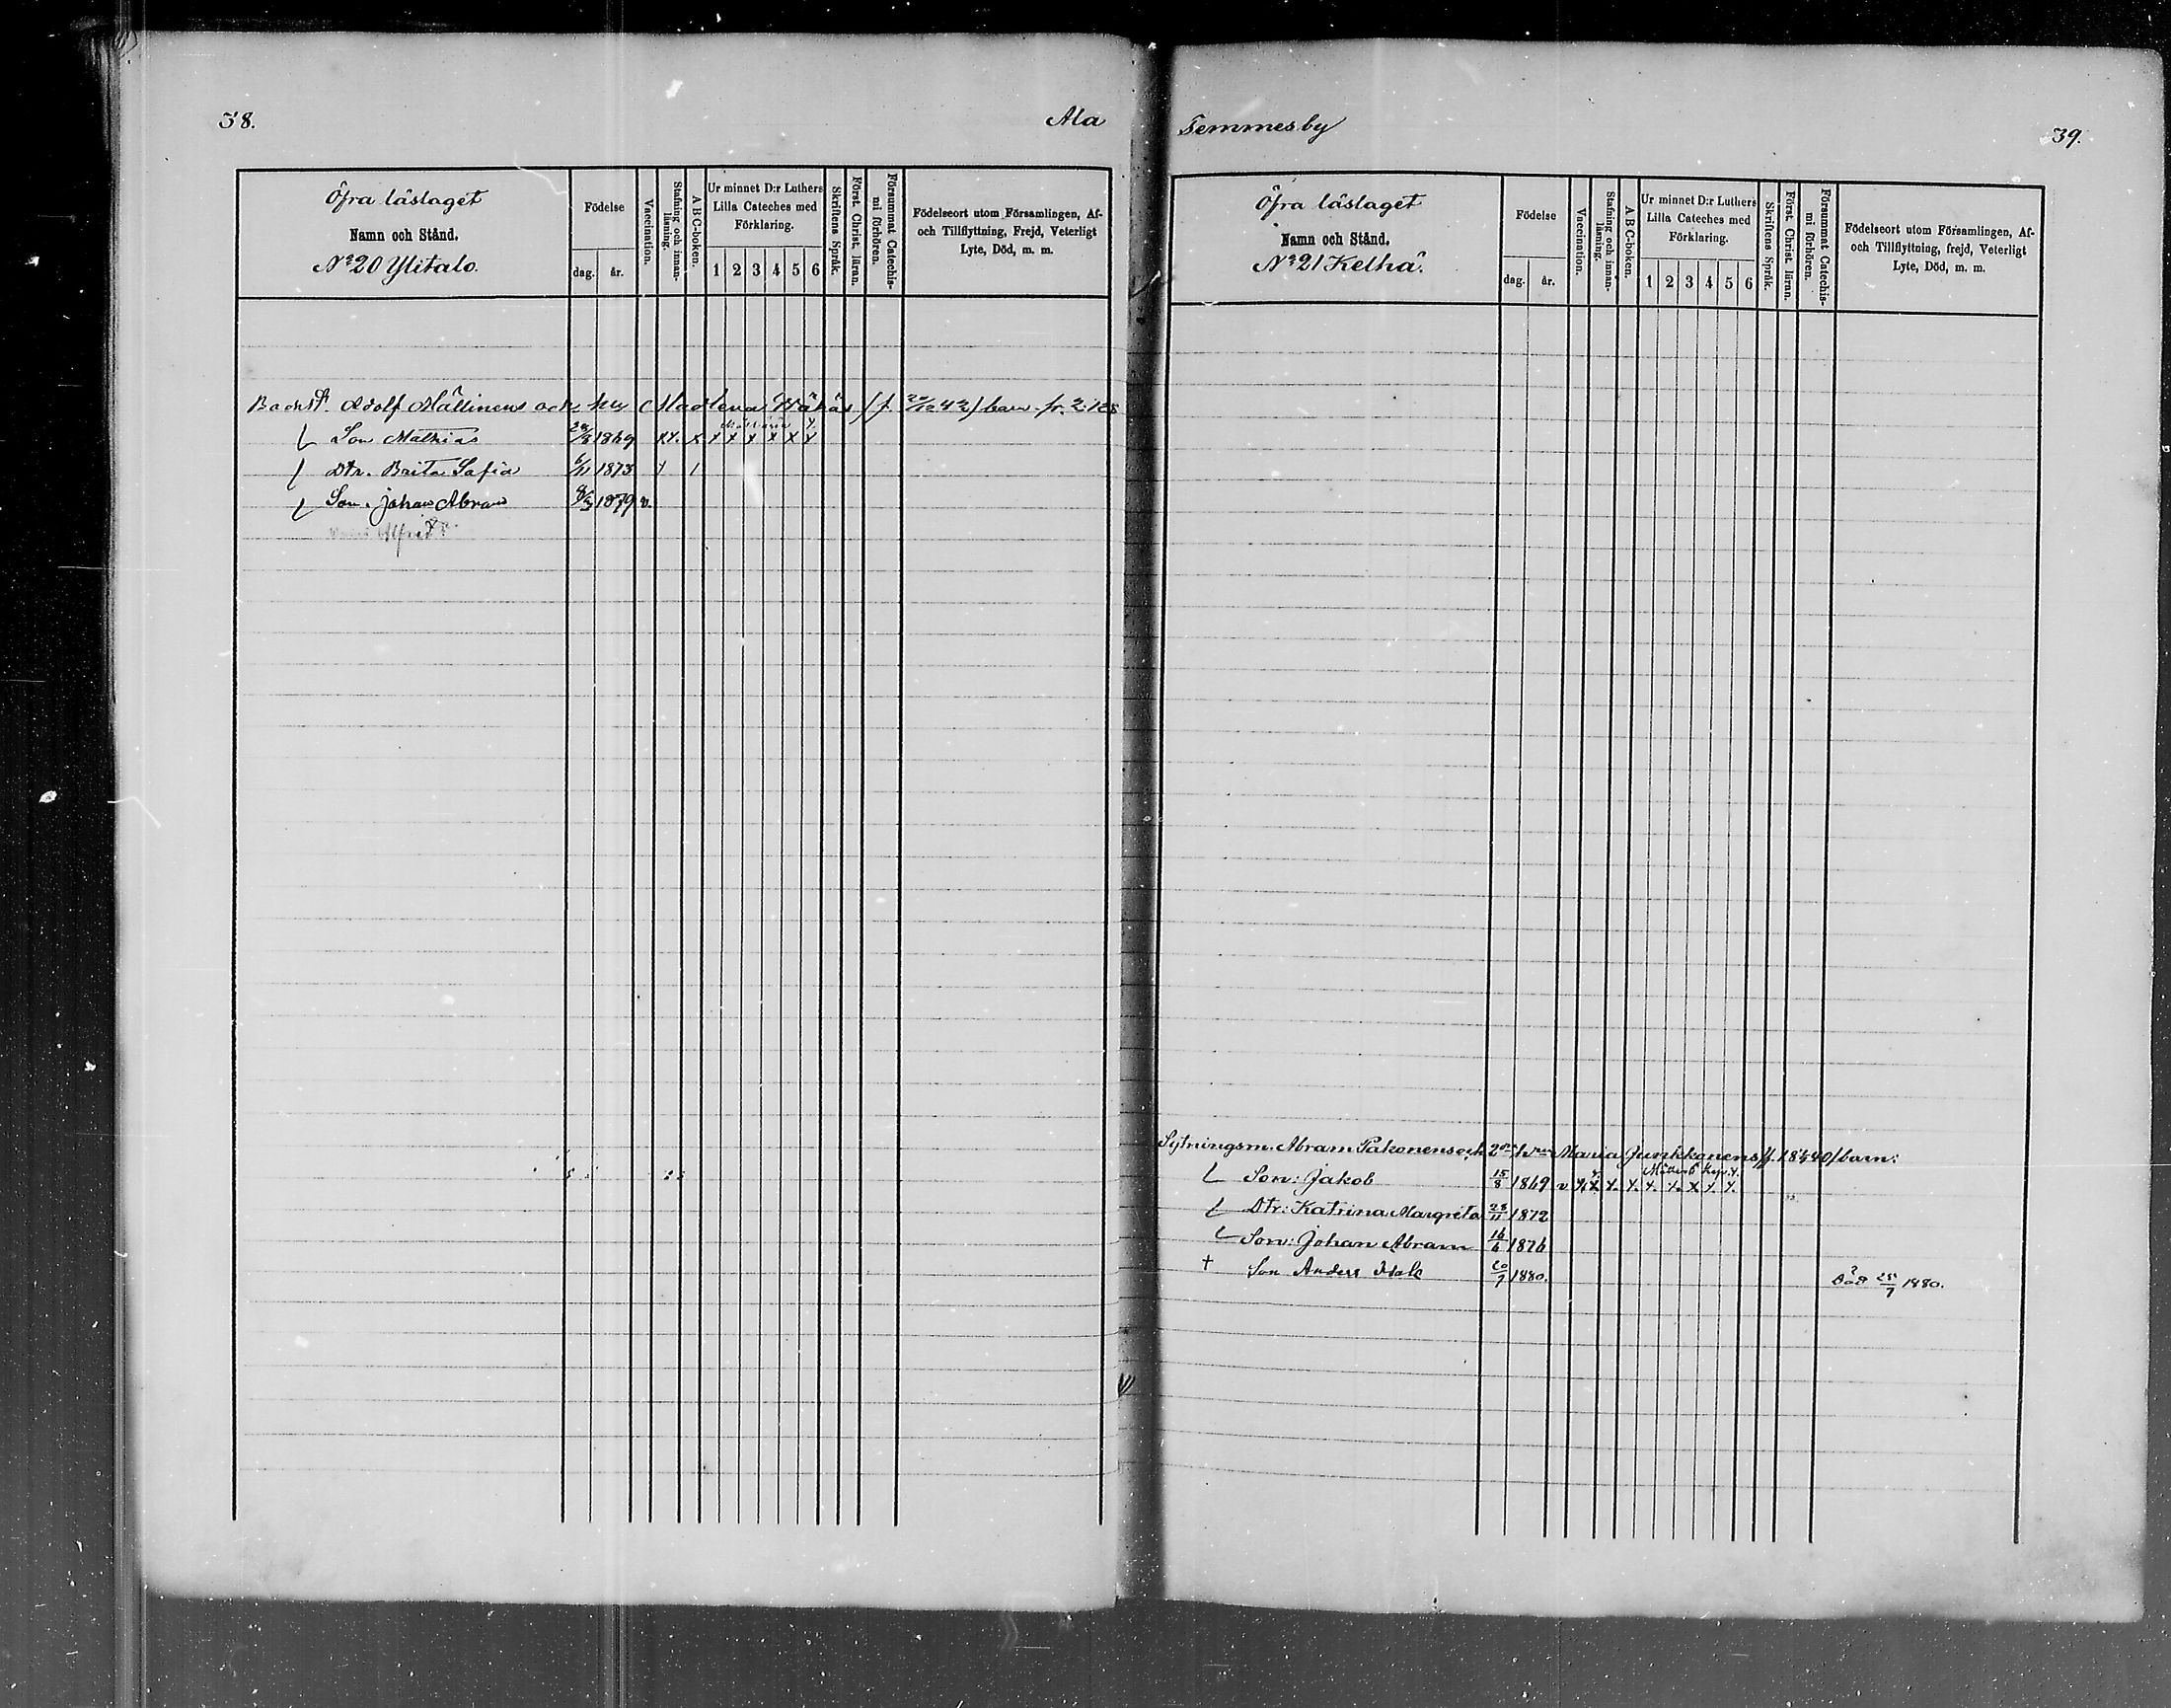 38.
Ala
Öfra läslaget
Namn och Stånd.
No 20 Ylitalo.
Födelse
dag. år.
Vaccination.
Stafning och innanläsning.
A B C-boken.
Ur minnet D:r Luthers
Lilla Cateches med
Förklaring.
1 2 3 4 5 6
Skriftens Språk.
Först. Christ. läran.
Försummat Catechismi förhören.
Födelseort utom Församlingen, Af-
och Tillflyttning, Frejd, Veterligt
Lyte, Död, m. m.
Backst. Adolf Mällinens och hu Madlena barn fr. 2:128
Son Mathias 1869 x x x x x x
Dtr. Brita Safia 6/11 1873
Son. Johan Abram 1879 v.
Alfred
Temmesby
39.
Öfra läslaget
Namn och Stånd.
No 21 Kelhä.
Födelse
dag. år.
Vaccination.
Stafning och innanläsning.
A B C-boken.
Ur minnet D:r Luthers
Lilla Cateches med
Förklaring.
1 2 3 4 5 6
Skriftens Språk.
Först. Christ. läran.
Försummat Catechismi förhören.
Födelseort utom Församlingen, Af-
och Tillflyttning, frejd, Veterligt
Lyte, Död, m. m.
Sytningsm. Abram Pakonens och 2dra hru Maria Junkkonens barn:
Son: Jakob 15/8 1869 v
Dtr: Katrina Margreta 28/11 1872
Son: Johan Abram 16/6 1876
† Son Anders Isak 20/7 1880. Död 25/7 1880.